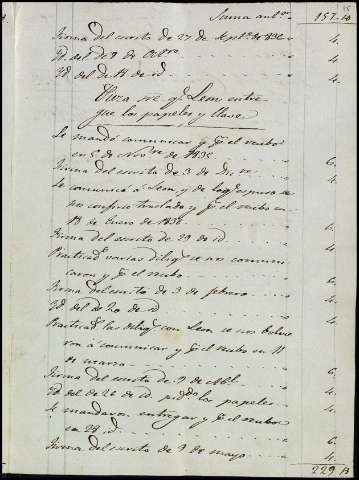 Suma ant.r 157.
Firma del escrito de 27 de Sept.e de 836 4.
Yd. del de 9 de Octre 4.
Yd. del de 14 de id. 4.
Pieza sre. qe. Leon entre-
gue los papeles y llave
Se mandó comunicar y qe. el recibo
en 5 de Novre de 1835 6.
Firma del escrito de 3 de Dic.re 4.
Se comunicó á Leon, y de lo qe. espuso se
nos confirió traslado y qe. el recibo en
18 de Enero de 1836 6.
Firma del escrito de 29 de id. 4.
Practicads varias diligs. se nos comuni-
caron y qe. el recibo 6.
Firma del escrito de 3 de febrero 4.
Yd. del de 20 de id. 4.
Practicads las diligs. con Leon se nos bolvie-
ron á comunicar y qe. el recibo en 11
de marzo 6.
Firma del escrito de 9 de Abl. 4.
Yd. del de 26 de id. los papeles 4.
Se mandaron entregar y qe. el recibo
en 28 id. 6.
Firma del escrito de 9 de mayo 4.
229 B